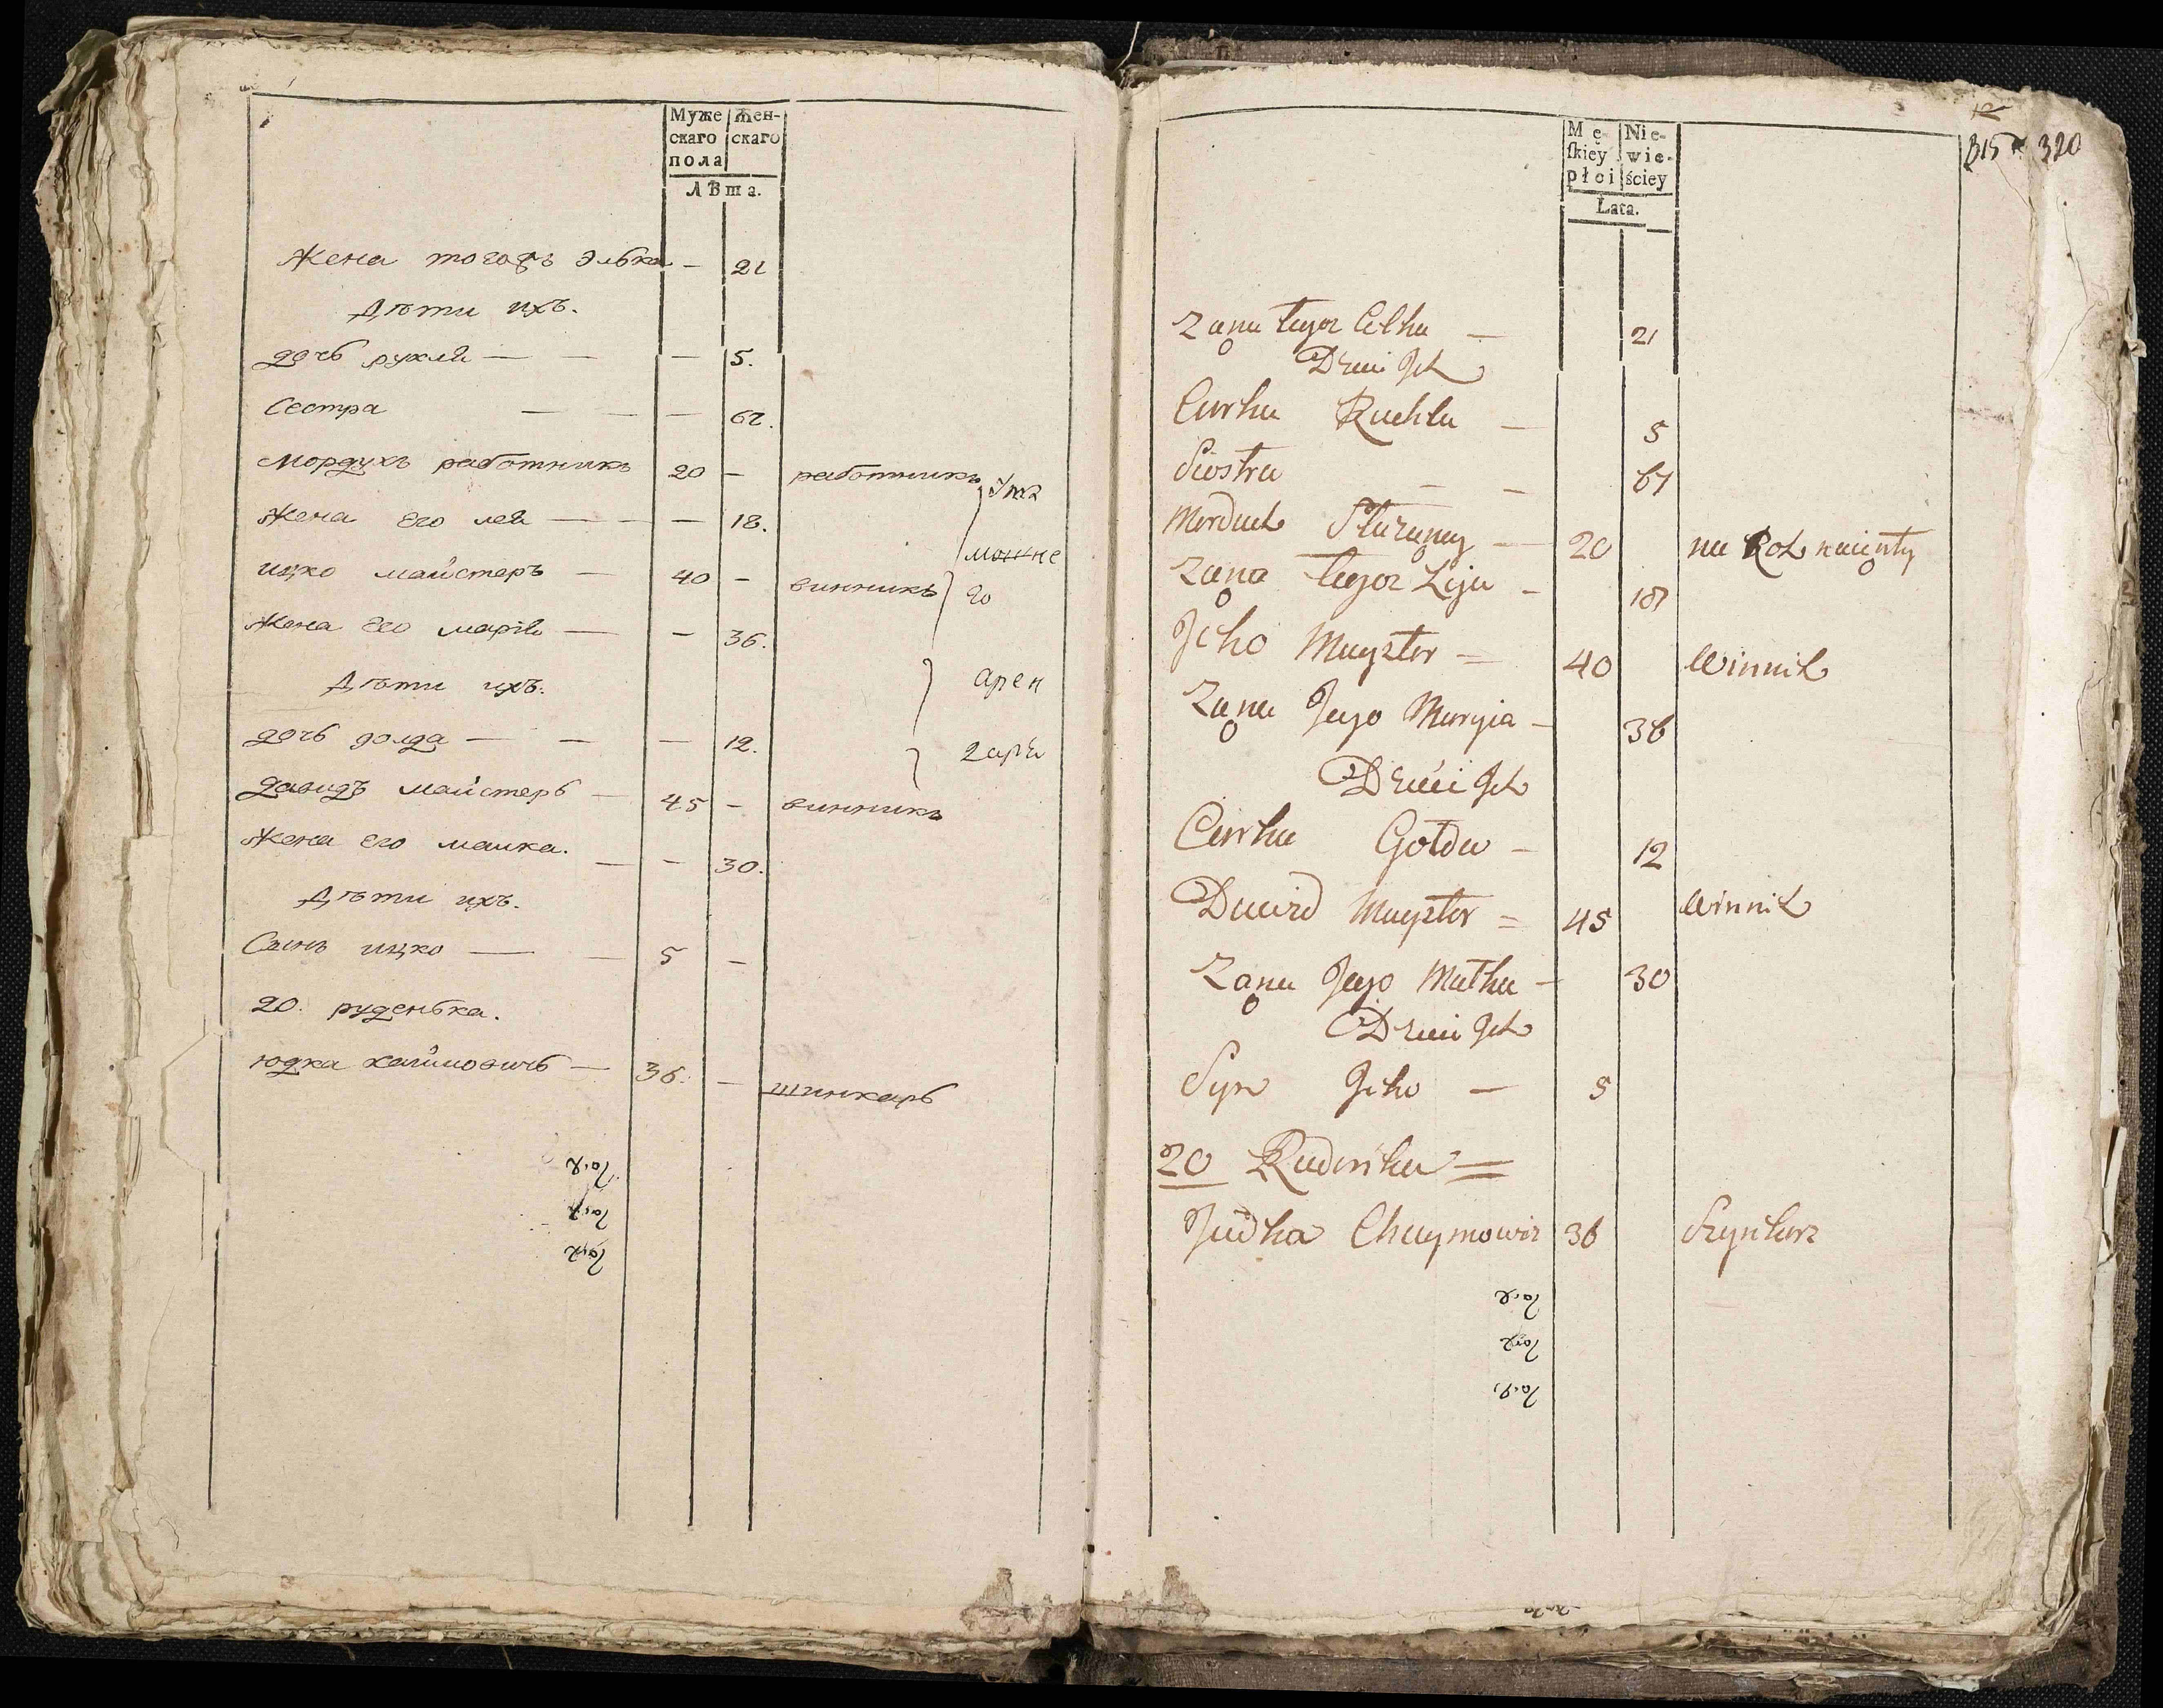 Муже Жен-
скаго скаго
пола
лѣта.
Жена тогожъ Элька — 21
Дѣти ихъ.
дочь рухля — — — 5.
Сестра — — — 67.
Мордухъ работникъ 20 — работникъ
Жена его лея — — — 18.
ицко майстеръ — 40 — винникъ
го
Жена его марія — — 36.
Дѣти ихъ.
арен
дочь голда — — — 12.
давидъ майстеръ — 45 — винникъ
Жена его малка. — — 30.
Дѣти ихъ.
Сынъ ицко — — 5 —
20. руденька.
юдка хаймовичъ — 36. — шинкарь
Mę- Nie-
ſkiey wie-
płci ściey
Lata.
315 320
Zona tegoz Elka — 21
Dzieci Ich
Curka Ruchla — 5
Siostra — — 67
Morduch Służący — 20
Zona tegoz Leja — 18
Icko Mayster = 40 Winnik
Zona Jego Maryia — 36
Dzieci Ich
Curka Gołda — 12
Dawid Mayster = 45 Winnik
Zona Jego Małka — 30
Dzieci Ich
Syn Icko — 5
20 Rudeńka =
Judka Chaymowicz 36 Szynkarz